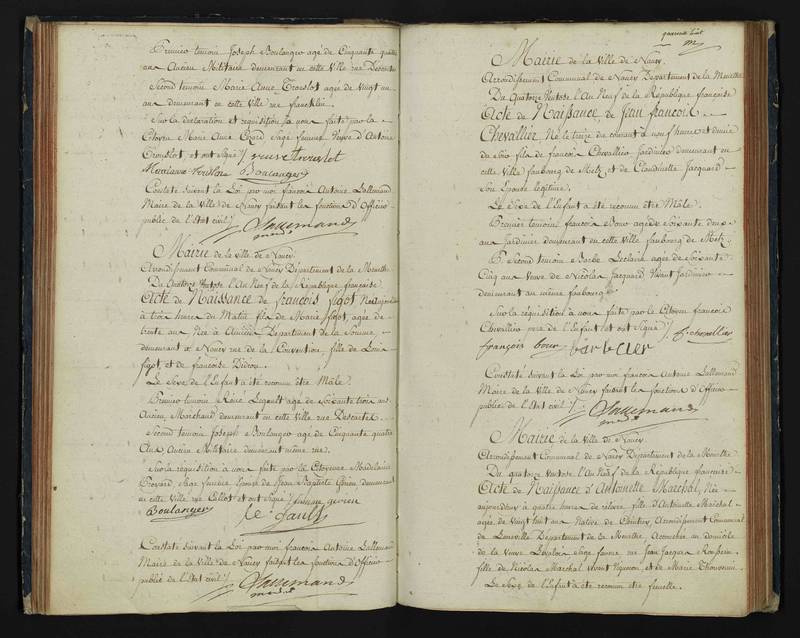 Premier temoin Joseph Boulanger agé de Cinquante quatre
ans Ancien Militaire demeurant en cette Ville rue Descartes
Second temoin Marie Anne Trouslot agée de vingt un
ans demeurant en cette Ville rue
Sur la déclaration et réquisition à nous faite par la
Citoyenne Marie Anne Sage femme Veuve d'Antoine
Trouslot, et ont signé / veuve trouslot
Boulanger
Constaté suivant la Loi par moi françois Antoine Lallemand
Maire de la Ville de Nancy faisant les fonctions d'Officier
public de l'Etat civil /. Lallemand
Mairie de la ville de Nancy
Arrondissement Communal de Nancy Département de la Meurthe
Du Quatorze Ventose l'An Neuf de la République française
Acte de Naissance de françois figot Né aujourd'hui
à trois heures du Matin fils de Marie figot, agée de
trente ans Née à Département de la Somme
demeurant à Nancy rue de la Convention, fille de Louis
figot, et de francoise
Le Sexe de l'Enfant a été reconnu être Mâle.
Premier temoin Réné Legault agé de Soixante trois ans
Ancien Marchand demeurant en cette Ville rue Descartes.
Second temoin Joseph Boulanger agé de Cinquante quatre
Ans Ancien Militaire demeurant même rue.
Sur la réquisition à nous faite par la Citoyenne Madelaine
Sage femme Epouse de Jean Baptiste demeurant
en cette Ville rue Callot et ont signé /
Boulanger
Constaté suivant la Loi par moi françois Antoine Lallemand
Maire de la Ville de Nancy faisant les fonctions d'Officier
public de l'Etat civil / Lallemand
Mairie de la Ville de Nancy.
Arrondissement Communal de Nancy Département de la Meurthe
Du Quatorze Ventose l'An Neuf de la République française
Acte de Naissance de Jean francois
Chevallier Né le treize du courant à neuf heures et demie
du Soir fils de francois Chevallier Jardinier demeurant en
cette Ville faubourg de Metz et de Claudinette Jacquard
Son Epouse légitime.
Le Sexe de l'Enfant a été reconnu être Mâle.
Premier temoin françois agé de Soixante deux
ans Jardinier demeurant en cette Ville faubourg de Metz.
Second temoin Barbe Leclerc agée de Soixante
Cinq ans Veuve de Nicolas Jacquard Vivant Jardinier
demeurant au même faubourg
Sur la réquisition à nous faite par le Citoyen françois
Chevallier pere de l'Enfant et ont Signé /. f chevallier
françois
Constaté suivant la Loi par moi francois Antoine Lallemand
Maire de la Ville de Nancy faisant les fonctions d'Officier
public de l'Etat civil /. Lallemand
Mairie de la Ville de Nancy
Arrondissement Communal de Nancy Département de la Meurthe
Du quatorze Ventose l'An Neuf de la République française
Acte de Naissance d'Antoinette Marchal, Née
aujourd'hui à quatre heures de fille d'Antoinette Marchal
agée de Vingt huit ans Native de Arrondissement Communal
de Luneville Département de la Meurthe, Accouchée au domicile
de la Veuve Sage femme rue Jean Jacques Rousseau.
fille de Nicolas Marchal vivant Vigneron et de Marie Thouvenin.
Le Sexe de l'Enfant a été reconnu être femelle.